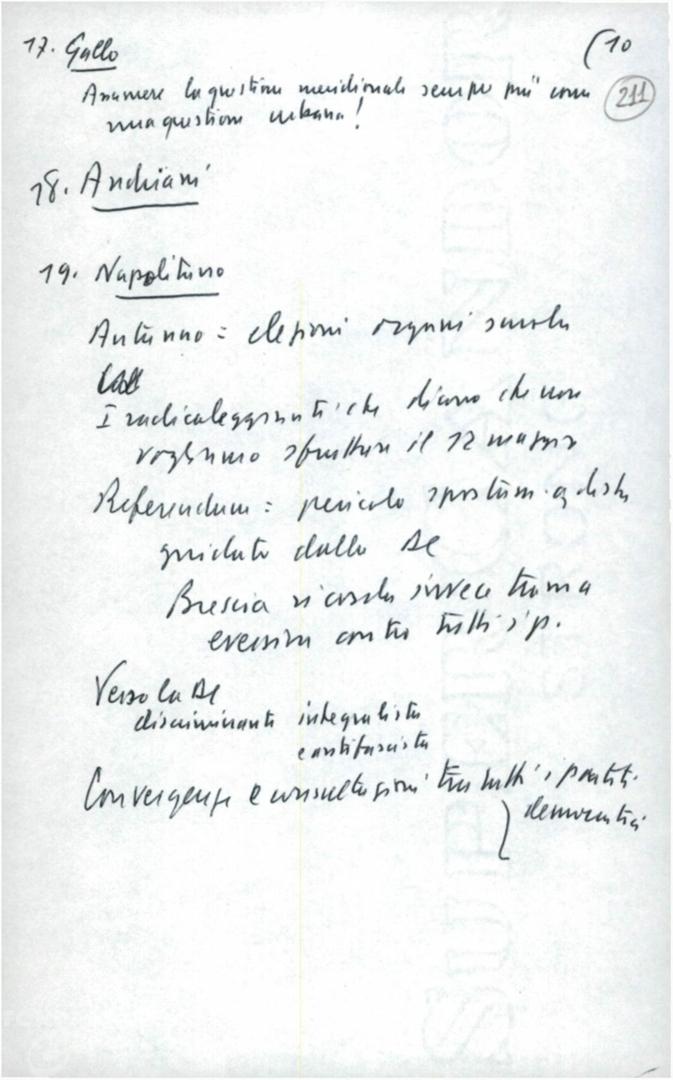 17. Gallo (10
Assumere la questione meridionale sempre più come 211
una questione urbana!
18. Andriani
19. Napolitano
Autunno = elezioni organi scuola
I radicaleggianti che dicono che non
vogliamo sfruttare il 12 maggio
Referendum = pericolo spostam. a destra
guidato dalla DC
Brescia ricorda invece trama
eversiva contro tutti i p.
Verso la DC
discriminante integralista
e antifascista
Convergenze e consultazioni tra tutti i partiti
democratici